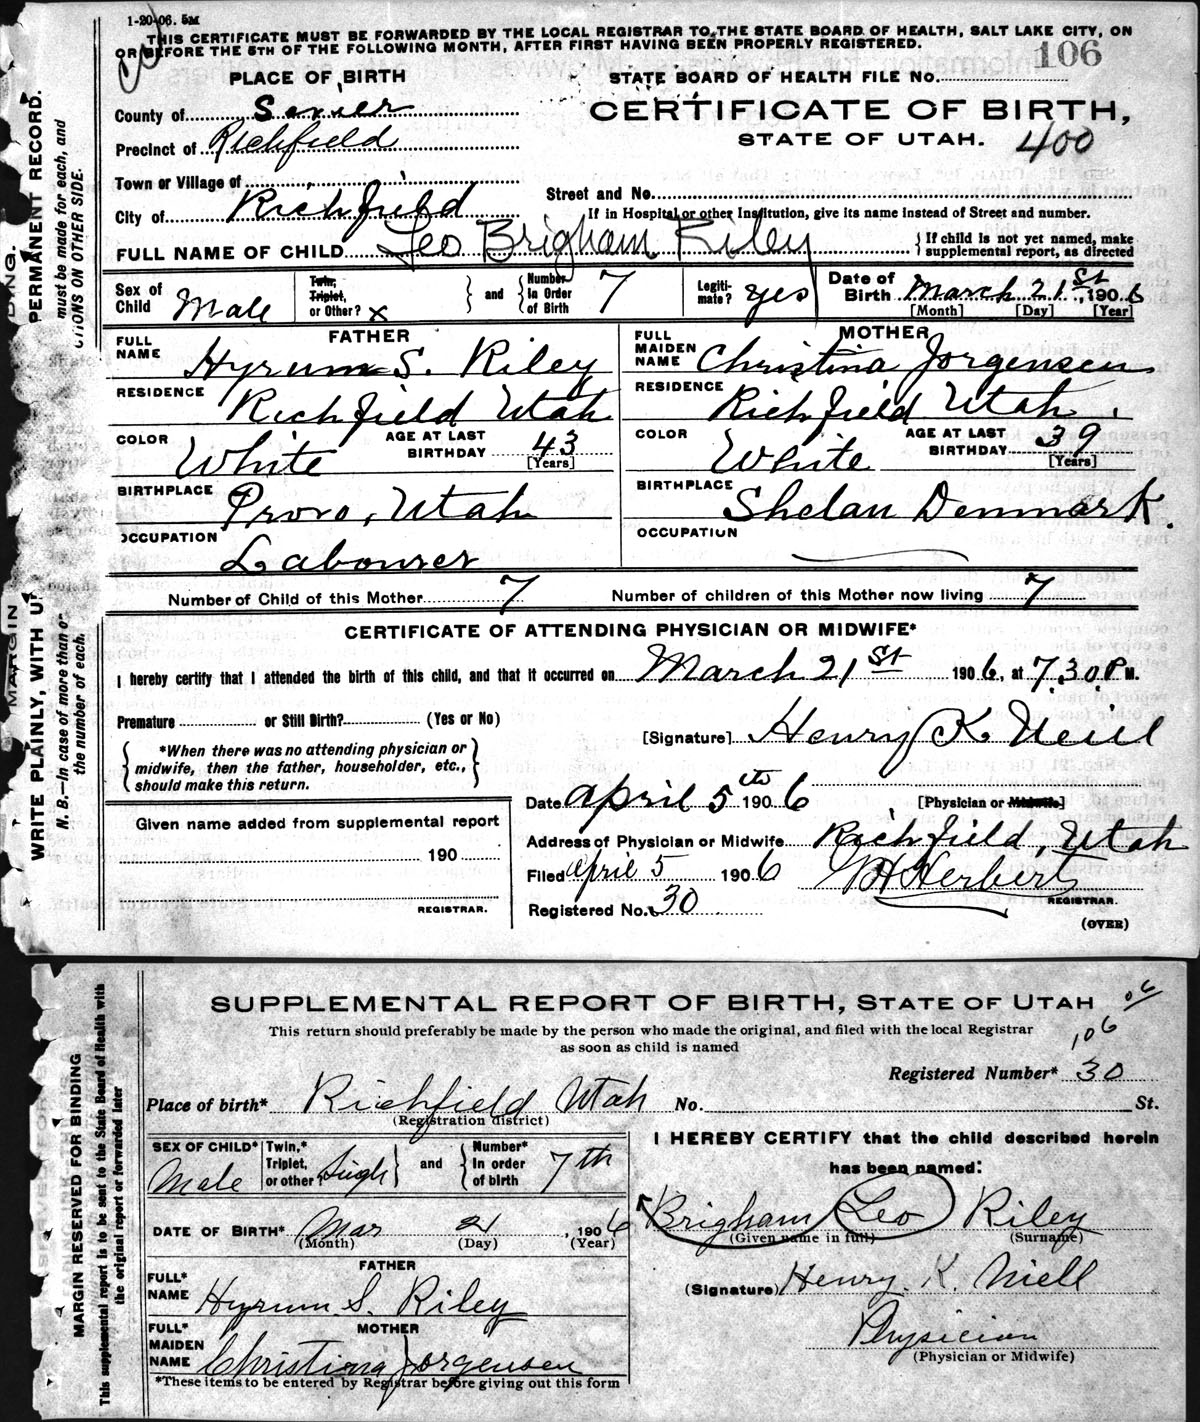 1-20-06. 5M
THIS CERTIFICATE MUST BE FORWARDED BY THE LOCAL REGISTRAR TO THE STATE BOARD OF HEALTH, SALT LAKE CITY, ON
OR BEFORE THE 5TH OF THE FOLLOWING MONTH, AFTER FIRST HAVING BEEN PROPERLY REGISTERED.
PLACE OF BIRTH
STATE BOARD OF HEALTH FILE No. 106
County of Sevier
CERTIFICATE OF BIRTH,
Precinct of Richfield
STATE OF UTAH. 400
Town or Village of
Street and No.
City of Richfield
If in Hospital or other Institution, give its name instead of Street and number.
FULL NAME OF CHILD Leo Brigham Riley
If child is not yet named, make
supplemental report, as directed
Sex of Child Male
Twin, Triplet, or Other? x
and
Number In Order of Birth 7
Legiti-mate? yes
Date of Birth March 21st, 1906
[Month] [Day] [Year]
FATHER
FULL NAME Hyrum S. Riley
RESIDENCE Richfield Utah
COLOR White
AGE AT LAST BIRTHDAY 43
[Years]
BIRTHPLACE Provo, Utah
OCCUPATION Labourer
MOTHER
FULL MAIDEN NAME Christina Jorgensen
RESIDENCE Richfield Utah,
COLOR White
AGE AT LAST BIRTHDAY 39
[Years]
BIRTHPLACE Shelau Denmark.
OCCUPATION
Number of Child of this Mother 7
Number of children of this Mother now living 7
CERTIFICATE OF ATTENDING PHYSICIAN OR MIDWIFE*
I hereby certify that I attended the birth of this child, and that it occurred on March 21st 1906, at 7.30. P. M.
Premature or Still Birth? (Yes or No)
[Signature] Henry K Neill
*When there was no attending physician or
midwife, then the father, householder, etc.,
should make this return.
Date april 5th 1906
[Physician or Midwife]
Given name added from supplemental report
190
REGISTRAR.
Address of Physician or Midwife Richfield, Utah
Filed april 5 1906
Herbert
REGISTRAR.
Registered No. 30
(OVER)
MARGIN
DING.
WRITE PLAINLY, WITH U
PERMANENT RECORD.
N. B.—In case of more than o
must be made for each, and
the number of each.
CTIONS ON OTHER SIDE.
SUPPLEMENTAL REPORT OF BIRTH, STATE OF UTAH
06
This return should preferably be made by the person who made the original, and filed with the local Registrar
as soon as child is named
106
Registered Number* 30
Place of birth* Richfield Utah No. St.
(Registration district)
SEX OF CHILD* Male
Twin,* Triplet, or other
and
Number* In order of birth 7th
DATE OF BIRTH* Mar 21, 1906
(Month) (Day) (Year)
FATHER
FULL* NAME Hyrum S. Riley
MOTHER
FULL* MAIDEN NAME Christina Jorgensen
*These items to be entered by Registrar before giving out this form
I HEREBY CERTIFY that the child described herein
has been named:
Brigham Leo Riley
(Given name in full) (Surname)
(Signature) Henry. K. Niell
Physician
(Physician or Midwife)
MARGIN RESERVED FOR BINDING
This supplemental report is to be sent to the State Board of Health with
the original report or forwarded later